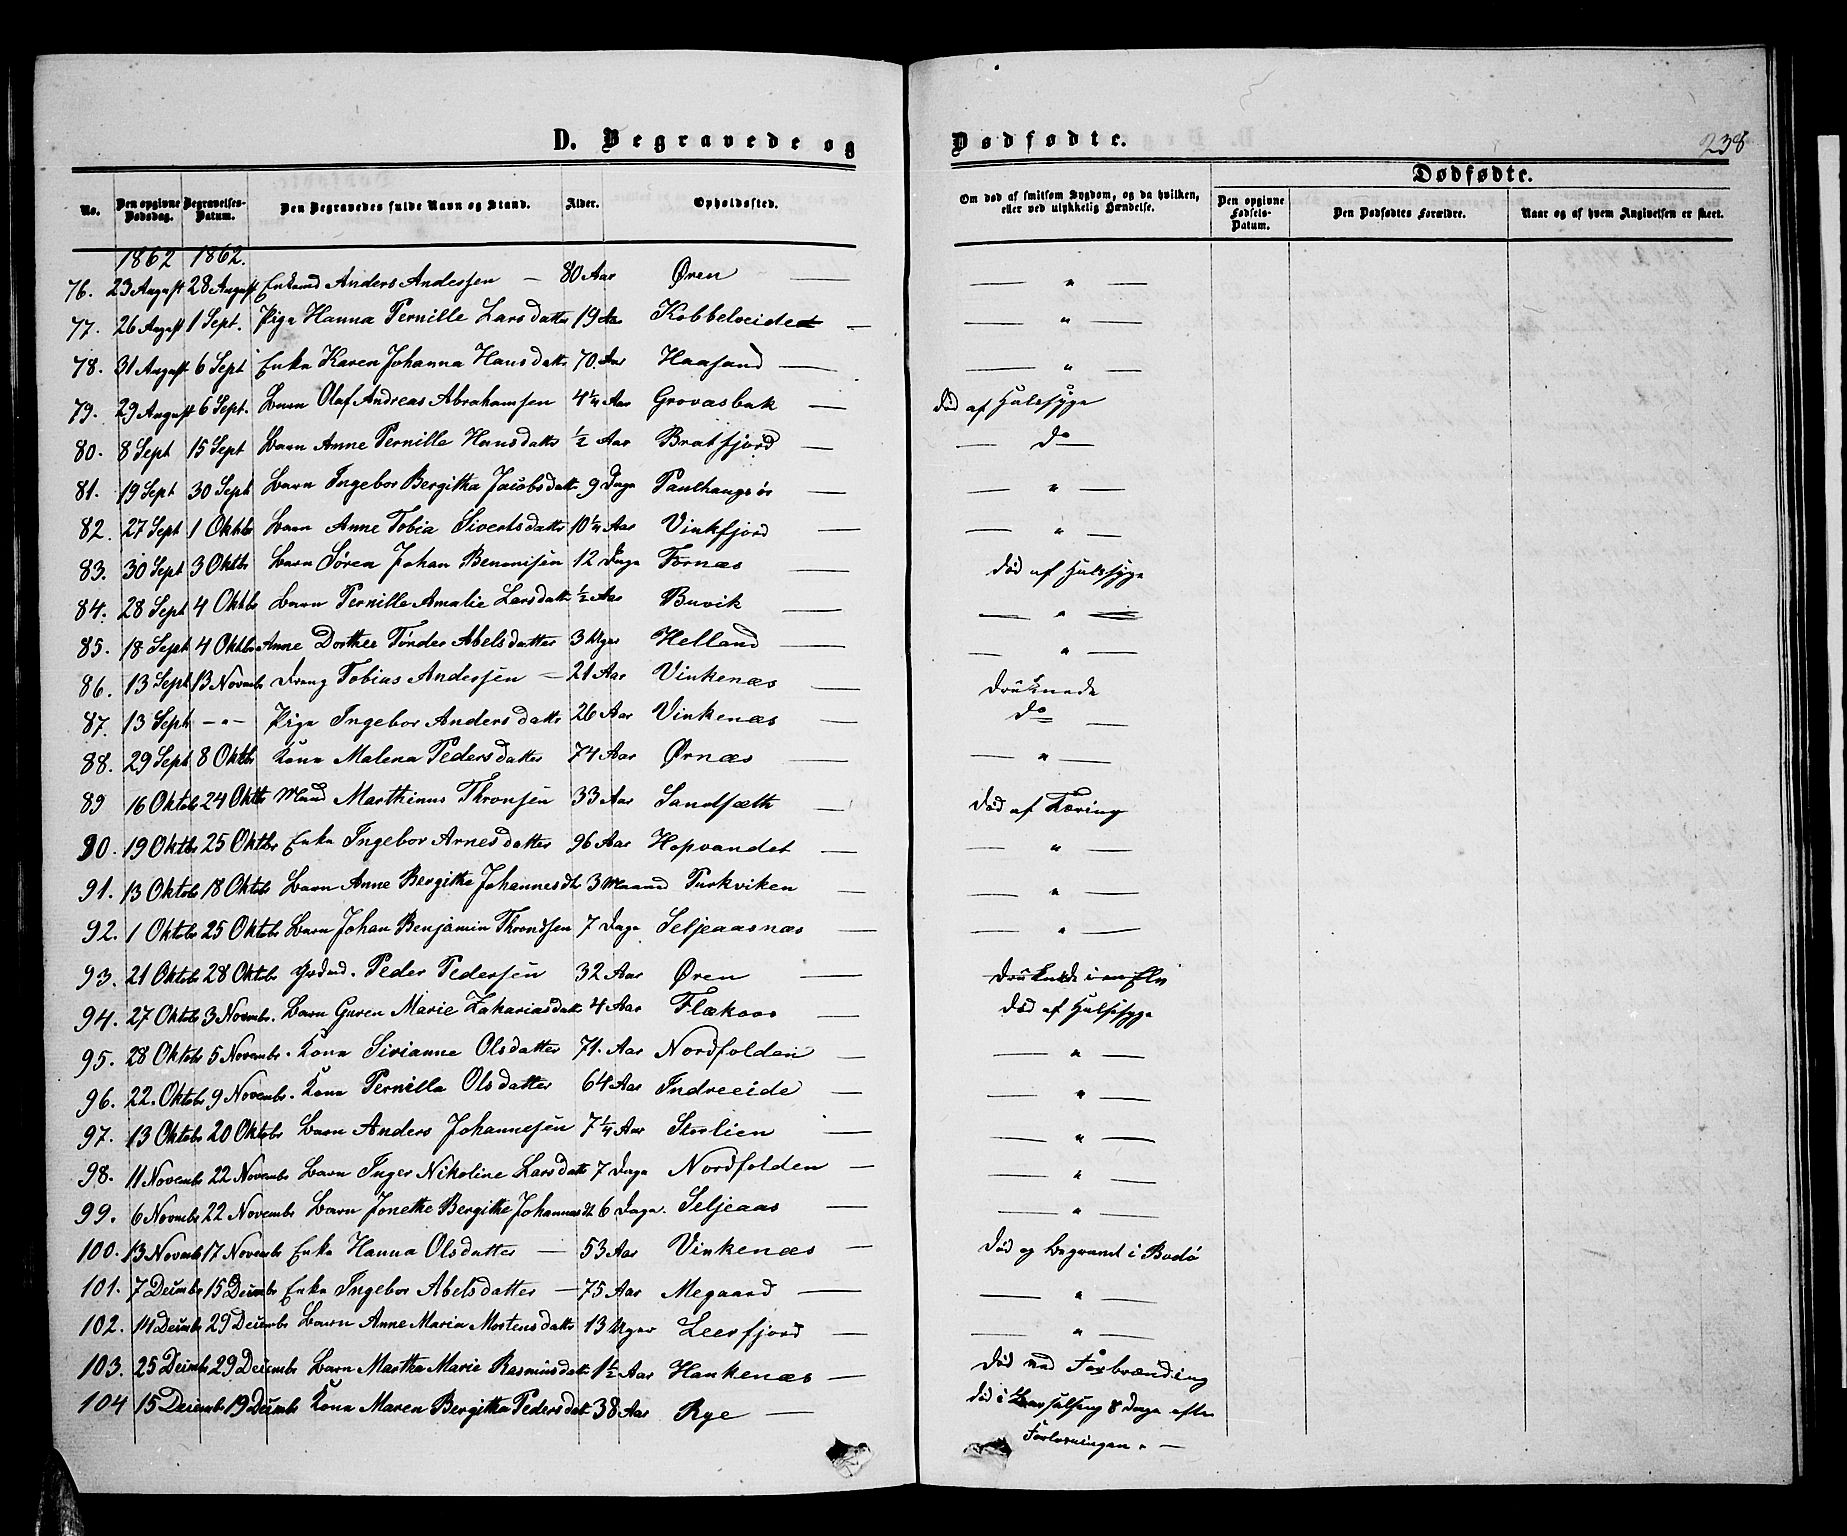 D. Begravede og Dødfødte. 238
Dødfødte.
No. Den opgivne Dødsdag. Begravelses-Datum. Den Begravedes fulde Navn og Stand. Alder. Opholdssted. Om død af smitsom Sygdom, og da hvilken, eller ved ulykkelig Hændelse. Den opgivne Fødsels-Datum. Den Dødfødtes Forældre. Naar og af hvem Angivelsen er skeet.
1862 1862.
76. 23 August 28 August Enkemd Anders Andersen — 80 Aar Øren — — " —
77. 26 August 1 Sept. Pige Hanna Pernille Larsdatter 19 Aar Kobbelveidet — — " —
78. 31 August 6 Sept Enke Karen Johanna Hansdattr 70 Aar Haasand — — " —
79. 29 August 6 Sept. Barn Olaf Andreas Abrahamsen 4 1/4 Aar Grovasbak — død af Halssyge
80. 8 Sept 15 Sept Barn Anne Pernille Hansdattr 1/2 Aar Bratfjord — — do —
81. 19 Sept 30 Sept Barn Ingebor Bergitha Jacobsdattr 9 Dage — — " —
82. 27 Sept 1 Oktbr Barn Anne Tobia Sivertsdatter 10 1/4 Aar Vinkfjord — — " —
83. 30 Sept 3 Oktbr Barn Søren Johan Benonisen 12 Dage Fornæs — død af Halssyge
84. 28 Sept 4 Oktbr Barn Pernille Amalie Larsdattr 1/2 Aar Buvik — — " —
85. 18 Sept 4 Oktbr Anne Dorthea Tønder Abelsdatter 3 Uger Helland — — " —
86. 13 Sept 13 Novembr Dreng Tobias Andersen — 21 Aar Vinkenæs — druknede
87. 13 Sept — " — Pige Ingebor Andersdattr 26 Aar Vinkenæs — do —
88. 29 Sept 8 Oktbr Kone Malena Pedersdatter 74 Aar Ørnæs — — " —
89 16 Oktobr 24 Oktbr Mand Marthinus Thronsen 33 Aar Sandsæth — død af Tæring
90. 19 Oktbr 25 Oktbr Enke Ingebor Arnesdatter 96 Aar Hopvandet — — " —
91. 13 Oktobr 18 Oktobr Barn Anne Bergithe Johannesdt 3 Maaned Purkviken — — " —
92. 1 Oktobr 25 Oktobr Barn Johan Benjamin Throndsen 7 Dage Seljeaasnæs — — " —
93. 21 Oktobr 28 Oktobr Peder Pedersen 32 Aar Øren — druknede i en Elv
94. 27 Oktobr 3 Novembr. Barn Guren Marie Zakariasdattr 4 Aar Flækaas — død af Halssyge
95. 28 Oktobr 5 Novembr. Kone Sirianne Olsdatter 71. Aar Nordfolden — — " —
96. 22. Oktobr 9 Novembr. Kone Pernilla Olsdatter 64 Aar Indreeide — — " —
97. 13 Oktobr 20 Oktobr Barn Anders Johannesen 7 1/4 Aar Storlien — — " —
98. 11 Novembr 22 Novembr Barn Inger Nikoline Larsdattr 7 Dage Nordfolden — — " —
99. 6 Novmbr 22 Novembr Barn Jonette Bergithe Johannesdt 6 Dage. Seljeaas — — " —
100. 13 Novmbr 17 Novembr Enke Hanna Olsdatter — 53 Aar Vinkenæs — død og begravet i Bodø
101. 7 Decmbr 15 Decmbr Enke Ingebor Abelsdatter — 75 Aar Megaard — — " —
102. 14 Decmbr 29 Decembr Barn Anne Maria Mortensdattr 13 Uger Leerfjord — — " —
103. 25 Decmbr 29 Decembr Barn Martha Marie Rasmusdattr 1 1/2 Aar Hankenæs — død ved Forbrænding
104 15 Decembr 19 Decmbr Kone Maren Bergitha Pedersdatt 38 Aar Rye — død i Barselseng 8 Dage efter
Forløsningen. —